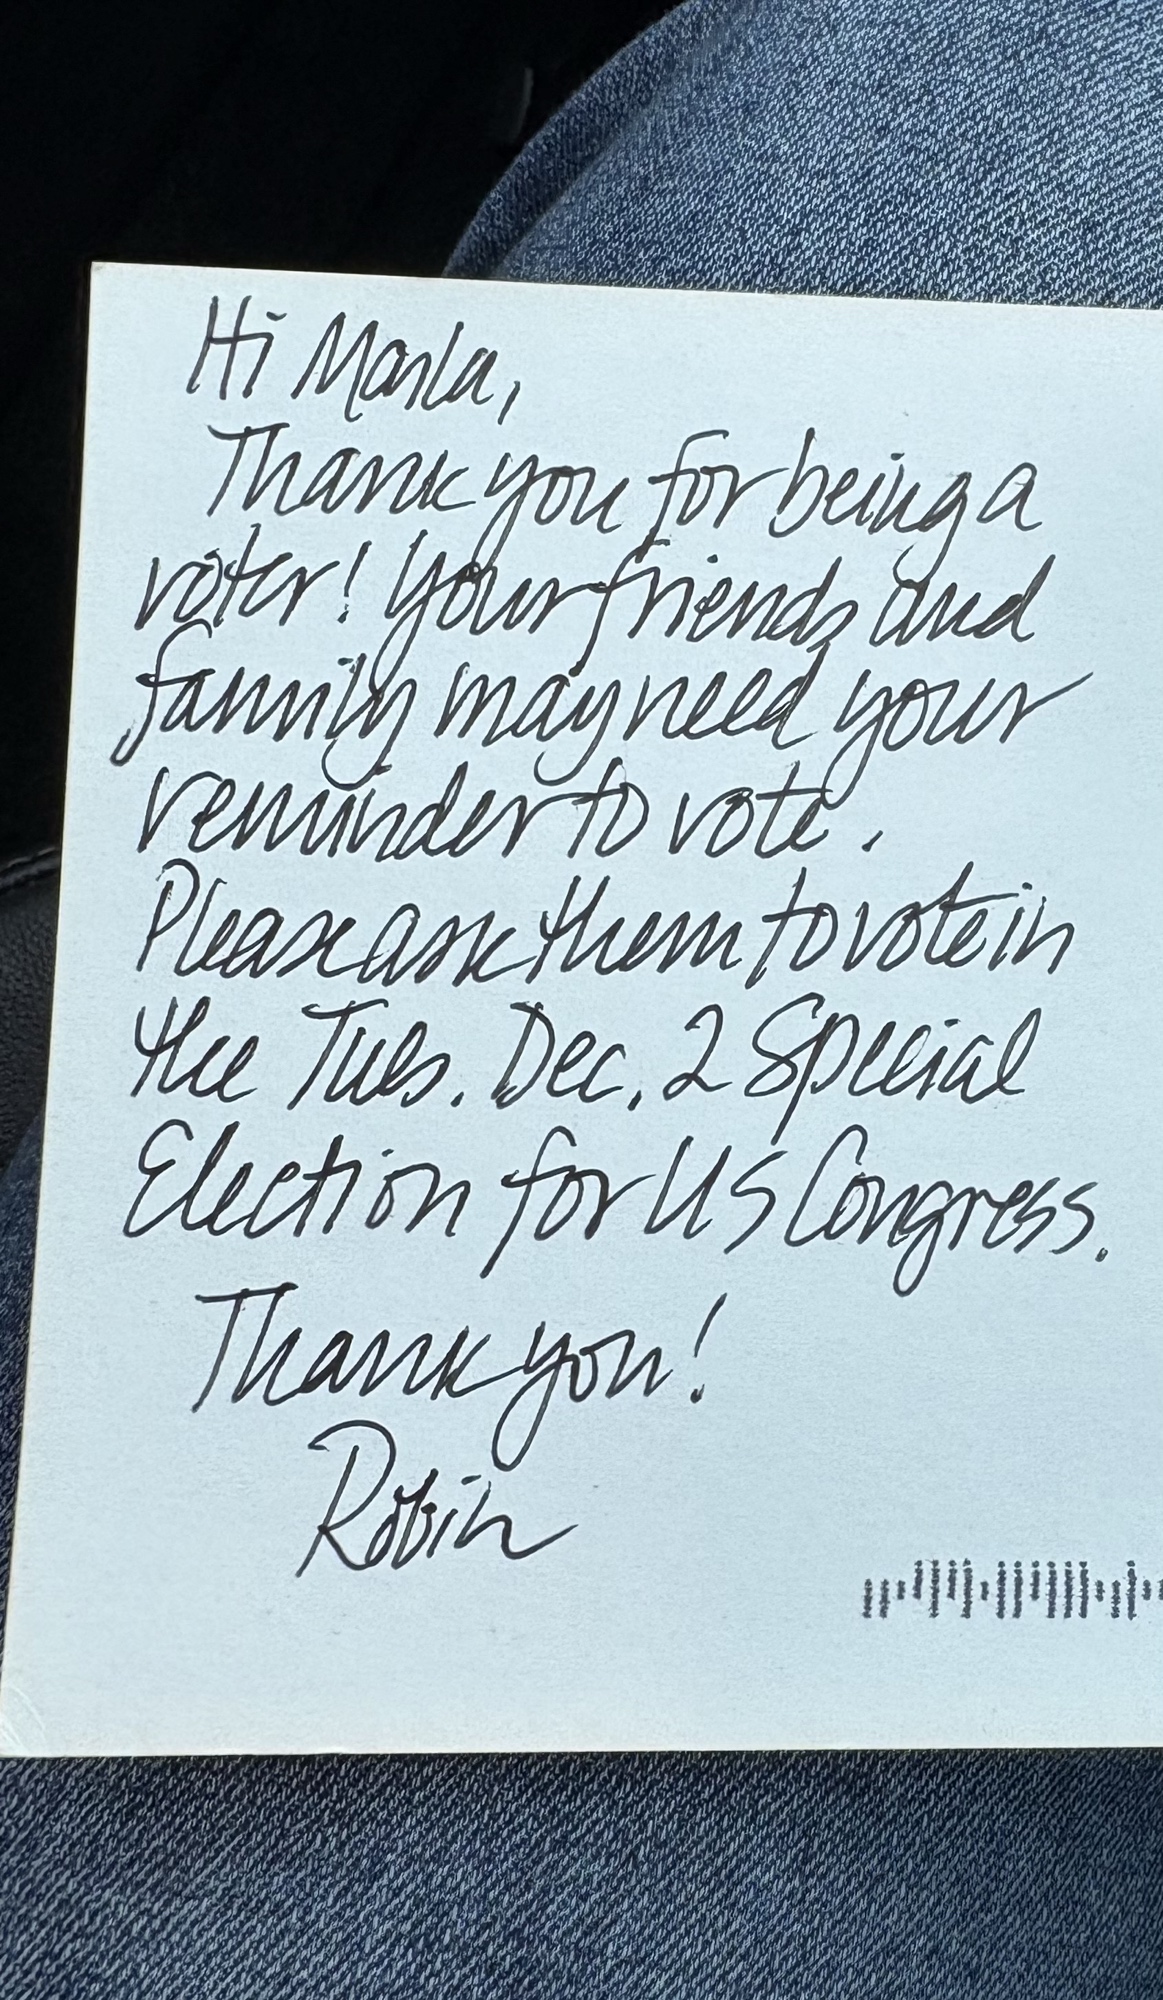 Hi Marla,
Thank you for being a
voter! Your friends and
family may need your
reminder to vote.
Please ask them to vote in
the Tues. Dec. 2 Special
Election for US Congress.
Thank you!
Robin